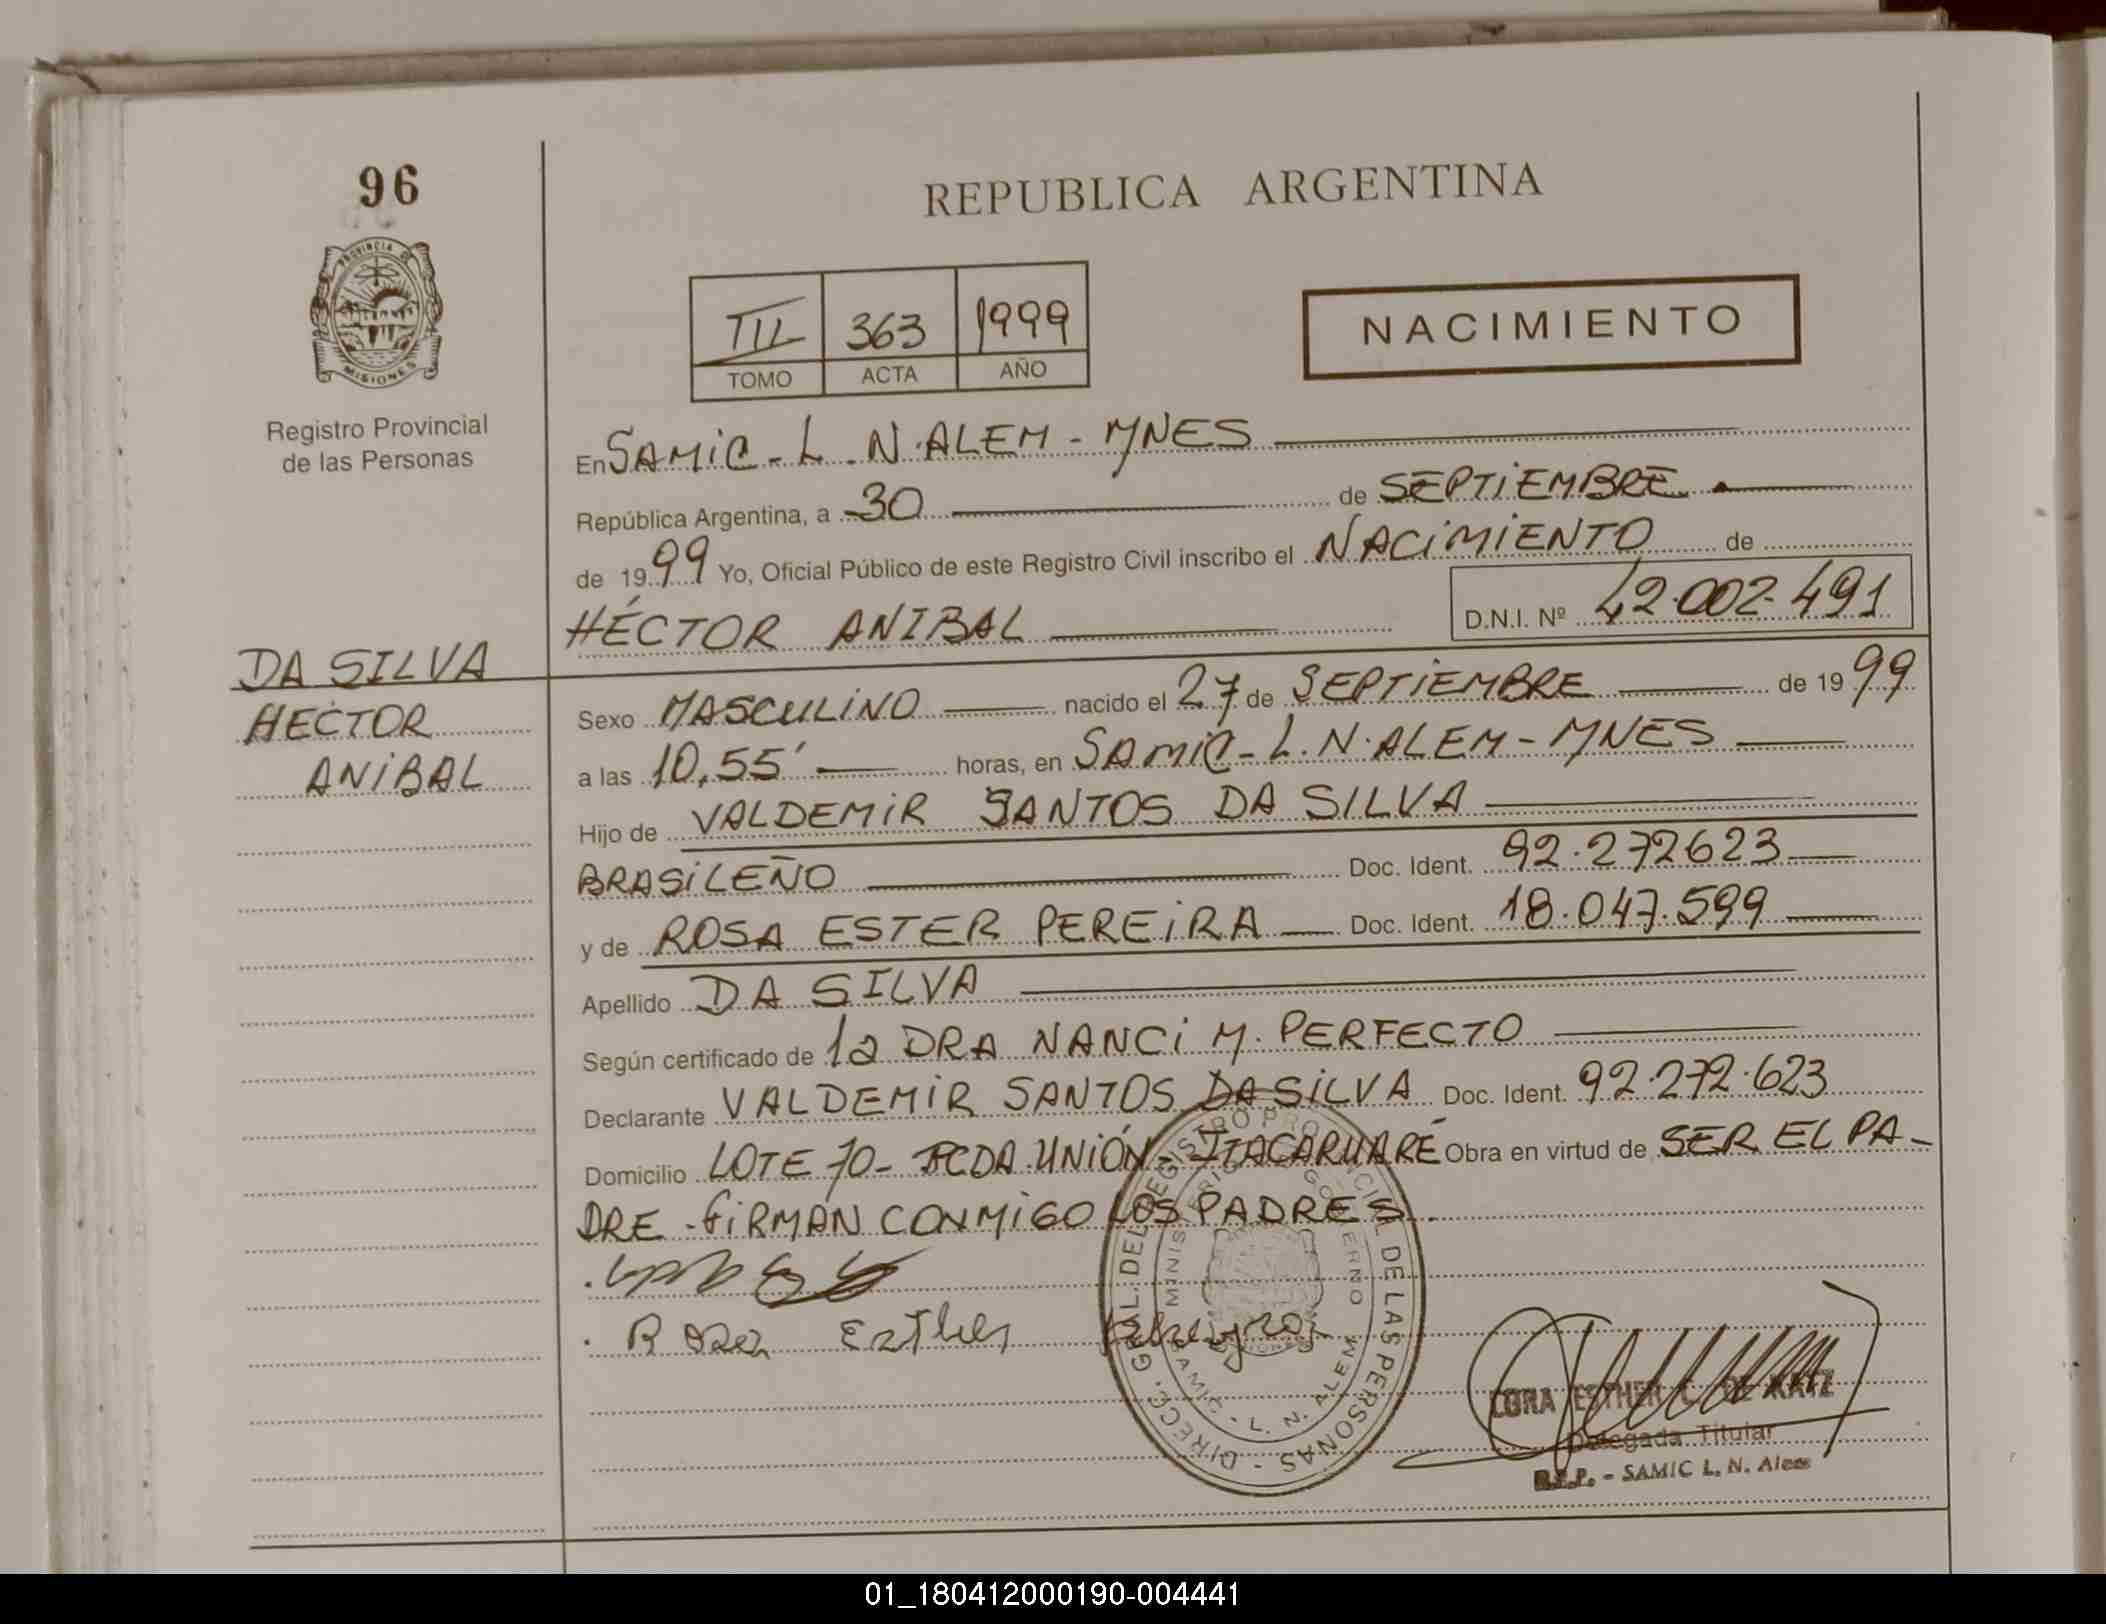 96
REPUBLICA ARGENTINA
PROVINCIA DE
MISIONES
Registro Provincial
de las Personas
III 363 1999
TOMO ACTA AÑO
NACIMIENTO
En SAMiC - L. N. ALEM - MNES
República Argentina, a 30 de SEPTiEMBRE
de 1999 Yo, Oficial Público de este Registro Civil inscribo el NACiMiENTO de
HÉCTOR ANIBAL D.N.I. Nº 42.002.491
DA SILVA
HECTOR
ANiBAL
Sexo MASCULiNO nacido el 27 de SEPTiEMBRE de 1999
a las 10,55' horas, en SAMiC - L. N. ALEM - MNES
Hijo de VALDEMiR SANTOS DA SILVA
BRASiLEÑO Doc. Ident. 92.272623
y de ROSA ESTER PEREiRA Doc. Ident. 18.047.599
Apellido DA SILVA
Según certificado de la DRA NANCi M. PERFECTO
Declarante VALDEMiR SANTOS DA SiLVA Doc. Ident. 92.272.623
Domicilio LOTE 70 - PCDA. UNIÓN - ITACARUARÉ Obra en virtud de SER EL PA-
DRE - FiRMAN CONMiGO LOS PADRES.
Rosa Esther
DIRECC. GRAL. DEL REGISTRO PROVINCIAL DE LAS PERSONAS
MINISTERIO GOBIERNO
SAMIC - L. N. ALEM
CORA ESTHER C. DE KATZ
Delegada Titular
R.P.P. - SAMIC L. N. Alem
01_180412000190-004441